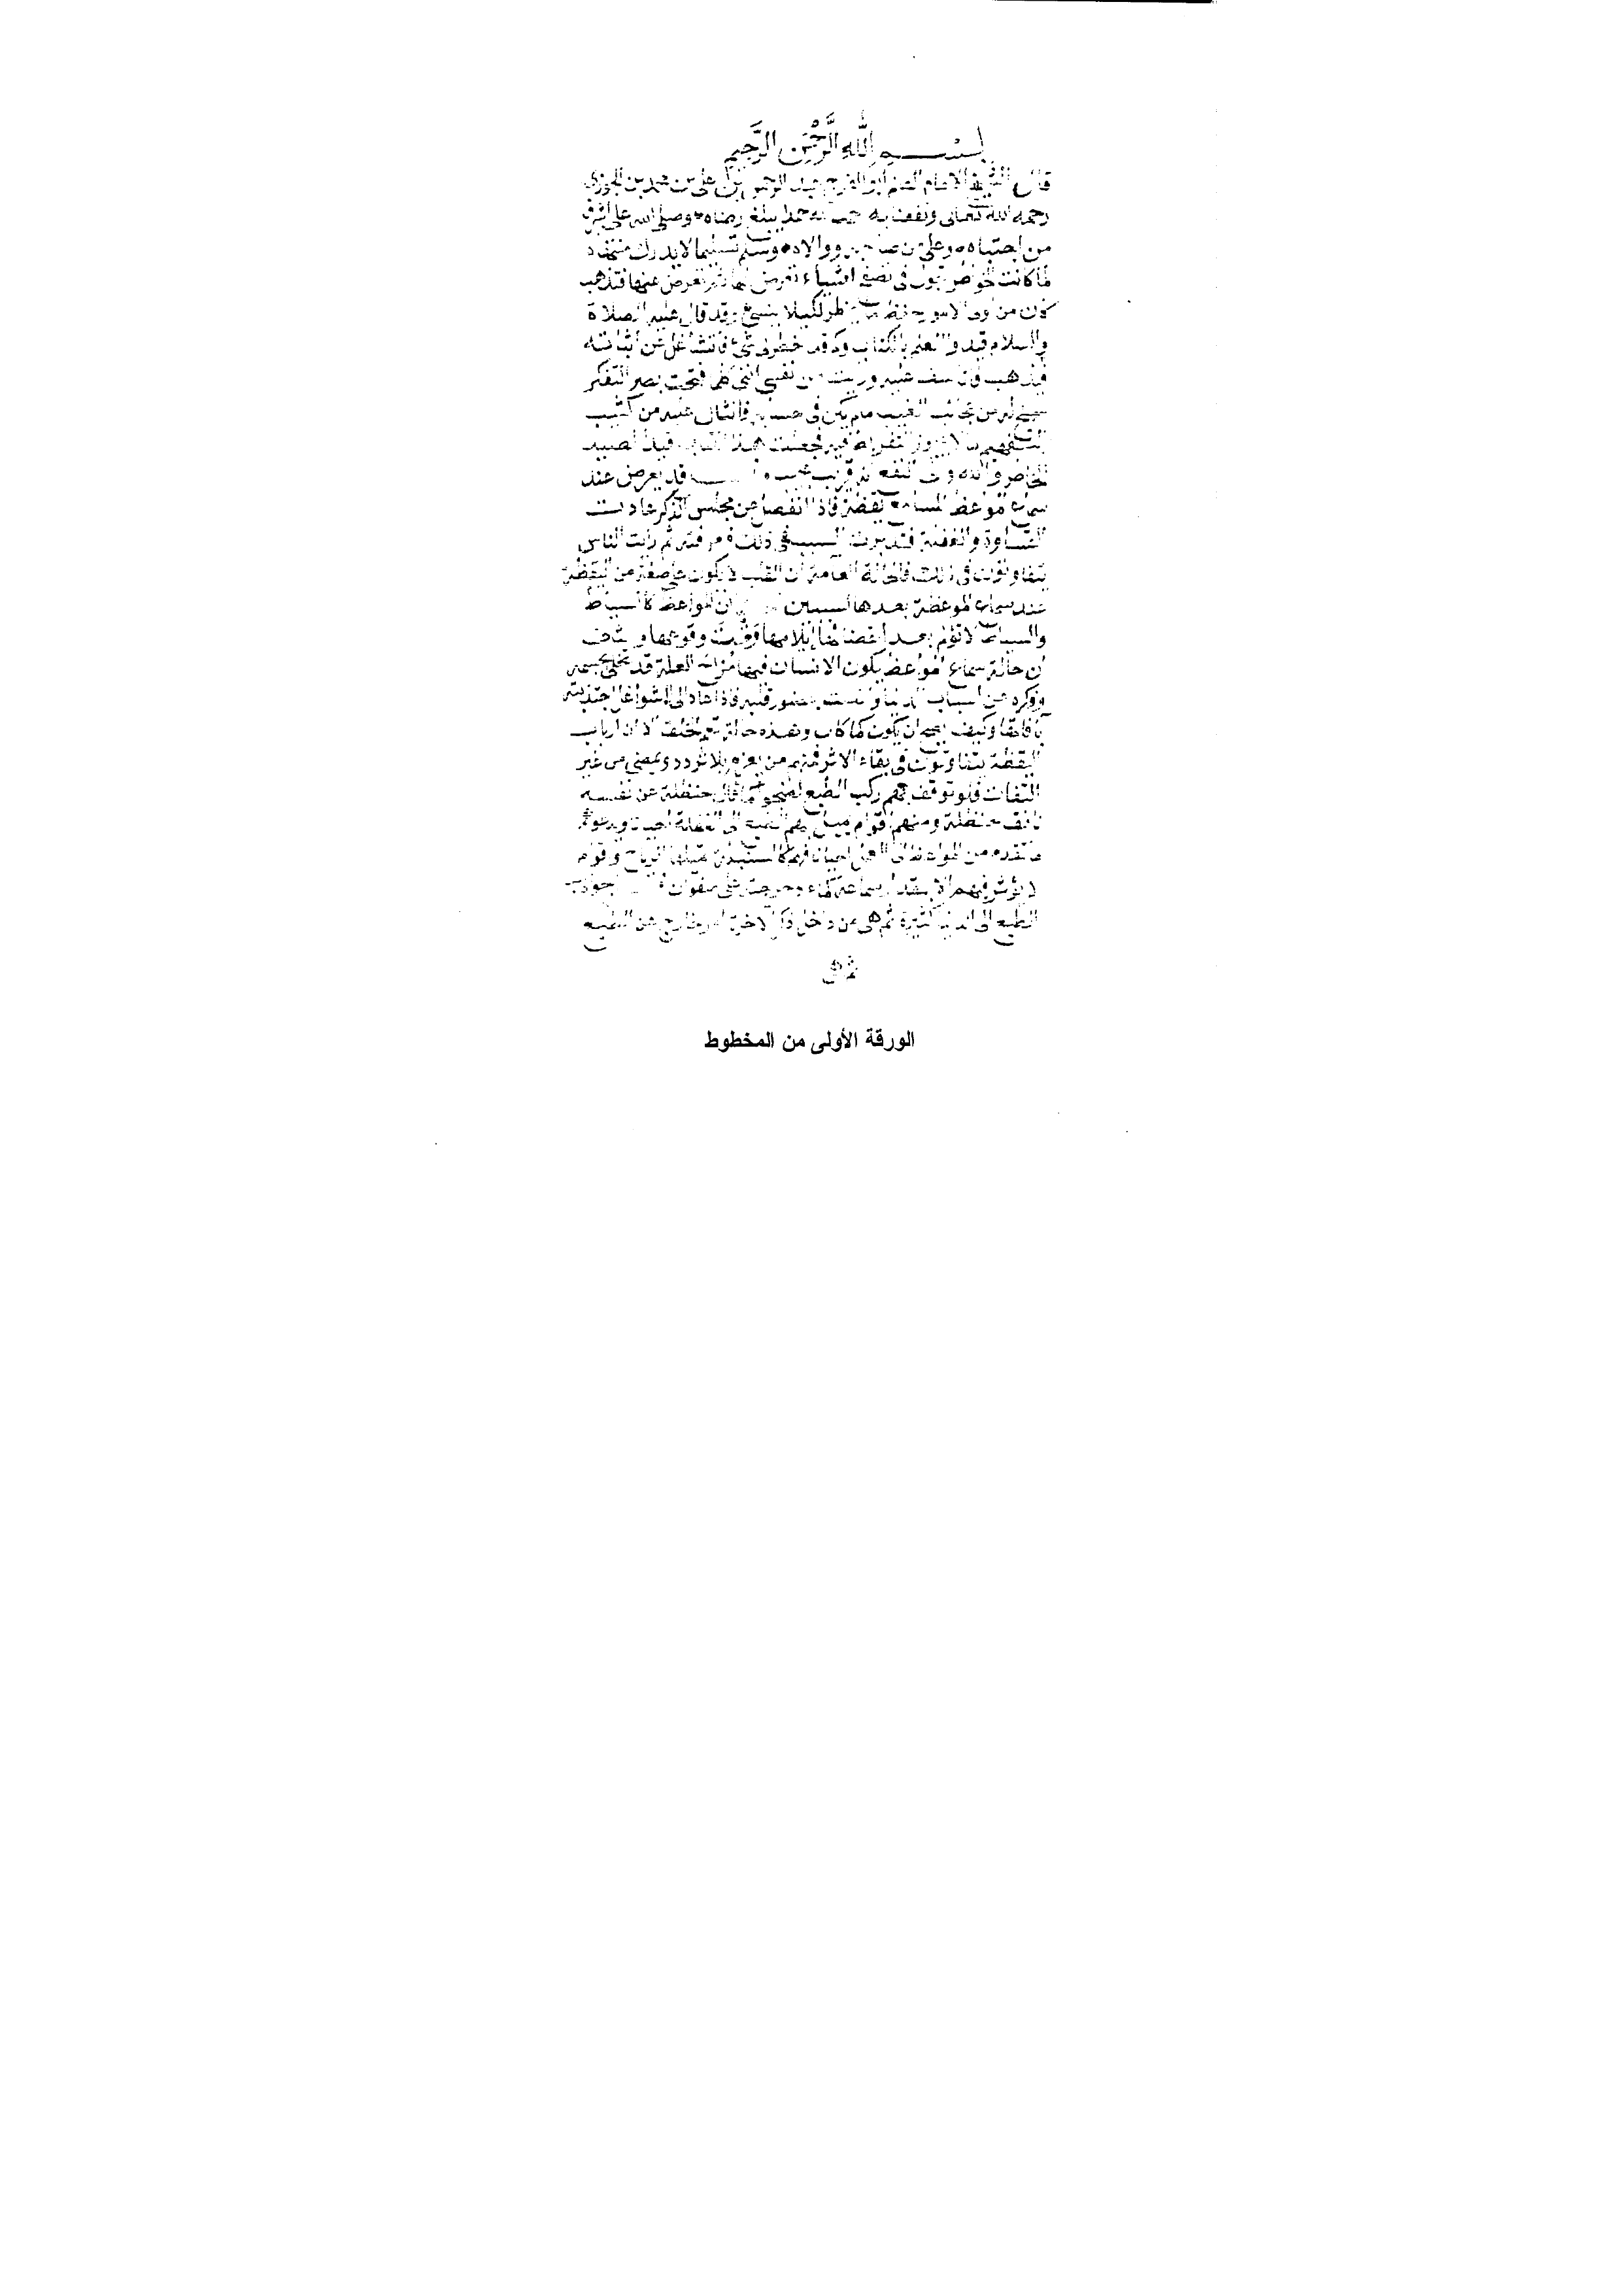 بسم الله الرحمن الرحيم
قال الشيخ الإمام العالم أبو الفرج عبد الرحمن بن علي بن محمد بن الجوزي
رحمه الله تعالى ونفعنا به حمدا يبلغ رضاه وصلى الله على أشرف
من اجتباه وعلى من صاحبه ووالاه وسلم تسليما لا يدرك منتهاه
لما كانت الخواطر تجول في تصفح أشياء تعرض لها ثم تعرض عنها فتذهب
كان من أولى الأمور حفظ ما يخطر لكيلا ينسى وقد قال عليه الصلاة
والسلام قيدوا العلم بالكتاب وكم قد خطر لي شيء فأتشاغل عن إثباته
فيذهب فأتأسف عليه ورأيت من نفسي أنني كلما فتحت بصر التفكر
سنح له من عجائب الغيب ما لم يكن في حساب فانثال عليه من كثيب
التفهيم ما لا يجوز التفريط فيه فجعلت هذا الكتاب قيدا لصيد
الخاطر والله ولي النفع إنه قريب مجيب قد يعرض عند
سماع المواعظ للسامع يقظة فإذا انفصل عن مجلس الذكر عادت
القساوة والغفلة فتدبرت السبب في ذلك فعرفته ثم رأيت الناس
يتفاوتون في ذلك فالحالة العامة أن القلب لا يكون على صفة من اليقظة
عند سماع الموعظة بعدها لسببين أن المواعظ كالسياط
والسياط لا تؤلم بعد انقضائها إيلامها وقت وقوعها والثاني
أن حالة سماع المواعظ يكون الإنسان فيها مزاح العلة قد تخلى بجسمه
وفكره عن أسباب الدنيا وأنصت بحضور قلبه فإذا عاد إلى الشواغل اجتذبته
بآفاتها وكيف يصح أن يكون كما كان وهذه حالة تعم الخلق إلا أن أرباب
اليقظة يتفاوتون في بقاء الأثر فمنهم من يعزم بلا تردد ويمضي من غير
التفات فلو توقف بهم ركب الطبع لضجوا كما قال حنظلة عن نفسه
نافق حنظلة ومنهم أقوام يميل بهم الطبع إلى الغفلة أحيانا ويدعوهم
ما تقدم من المواعظ إلى العمل أحيانا فهم كالسنبلة تميلها الرياح وأقوام
لا يؤثر فيهم إلا بمقدار سماعه كماء دحرجته على صفوان جواذب
الطبع إلى الدنيا كثيرة ثم هي من داخل وذكر الآخرة أمر خارج عن الطبع
الورقة الأولى من المخطوط